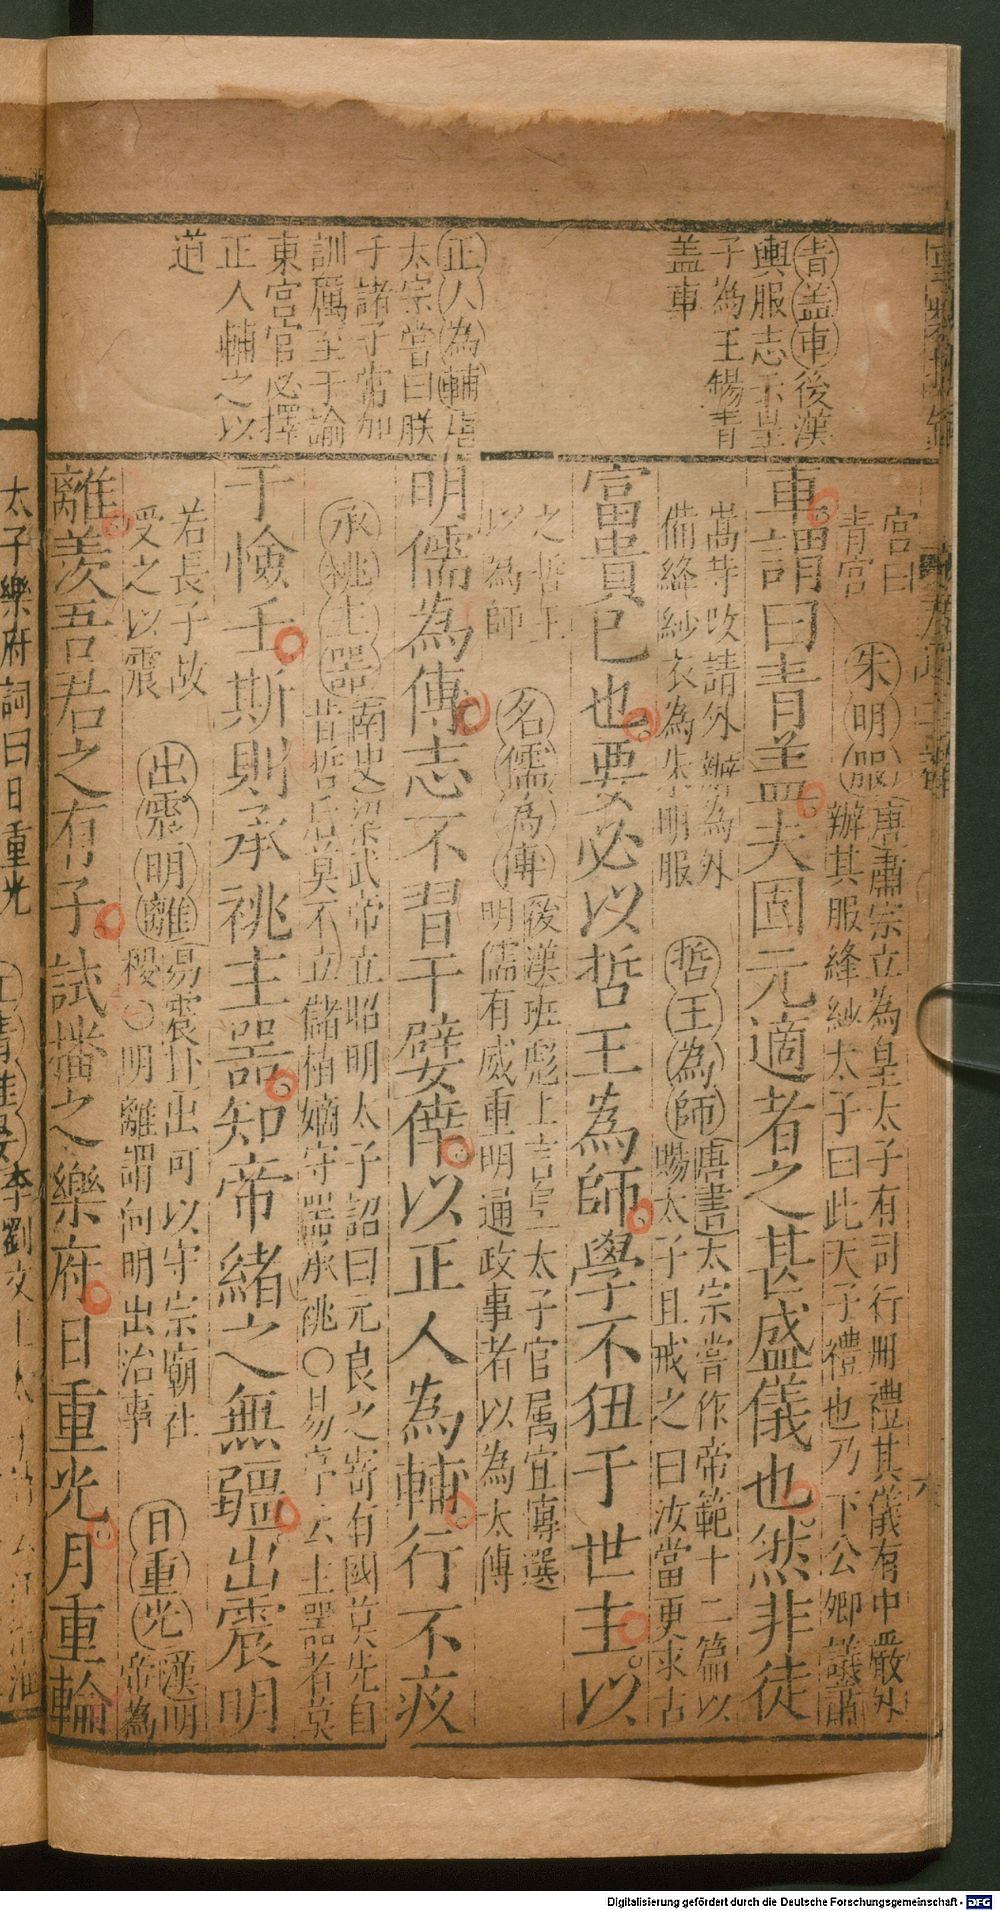 青盖車後漢
輿服志云皇
子為王錫青
盖車
正人為輔唐
太宗嘗曰朕
于諸子常加
訓厲至于論
東宮官必擇
正人輔之以
道
宮曰
青宮
朱明服唐肅宗立為皇太子有司行冊禮其儀有中嚴外
辦其服絳紗太子曰此天子禮也乃下公卿議蕭
車謂曰青盖夫固元適者之甚盛儀也然非徒
嵩等改請外辦為外
備絳紗衣為朱明服
哲王為師唐書太宗嘗作帝範十二篇以
賜太子且戒之曰汝當更求古
富貴已也要必以哲王為師學不狃于世主以
之哲王
以為師
名儒為傅後漢班彪上言皇太子官属宜博選
明儒有威重明通政事者以為太傅
明儒為傅志不習干嬖倖以正人為輔行不疚
承祧主器南史梁武帝立昭明太子詔曰元良之寄有國莫先自
昔哲后莫不立儲植嫡守器承祧〇易序云主器者莫
于憸壬斯則承祧主器知帝緒之無疆出震明
若長子故
受之以震
出震明離易震卦出可以守宗廟社
稷〇明離謂向明出治事
日重光漢明
帝為
離羨吾君之有子試播之樂府日重光月重輪
太子樂府詞曰日重光
Digitalisierung gefördert durch die Deutsche Forschungsgemeinschaft - DFG